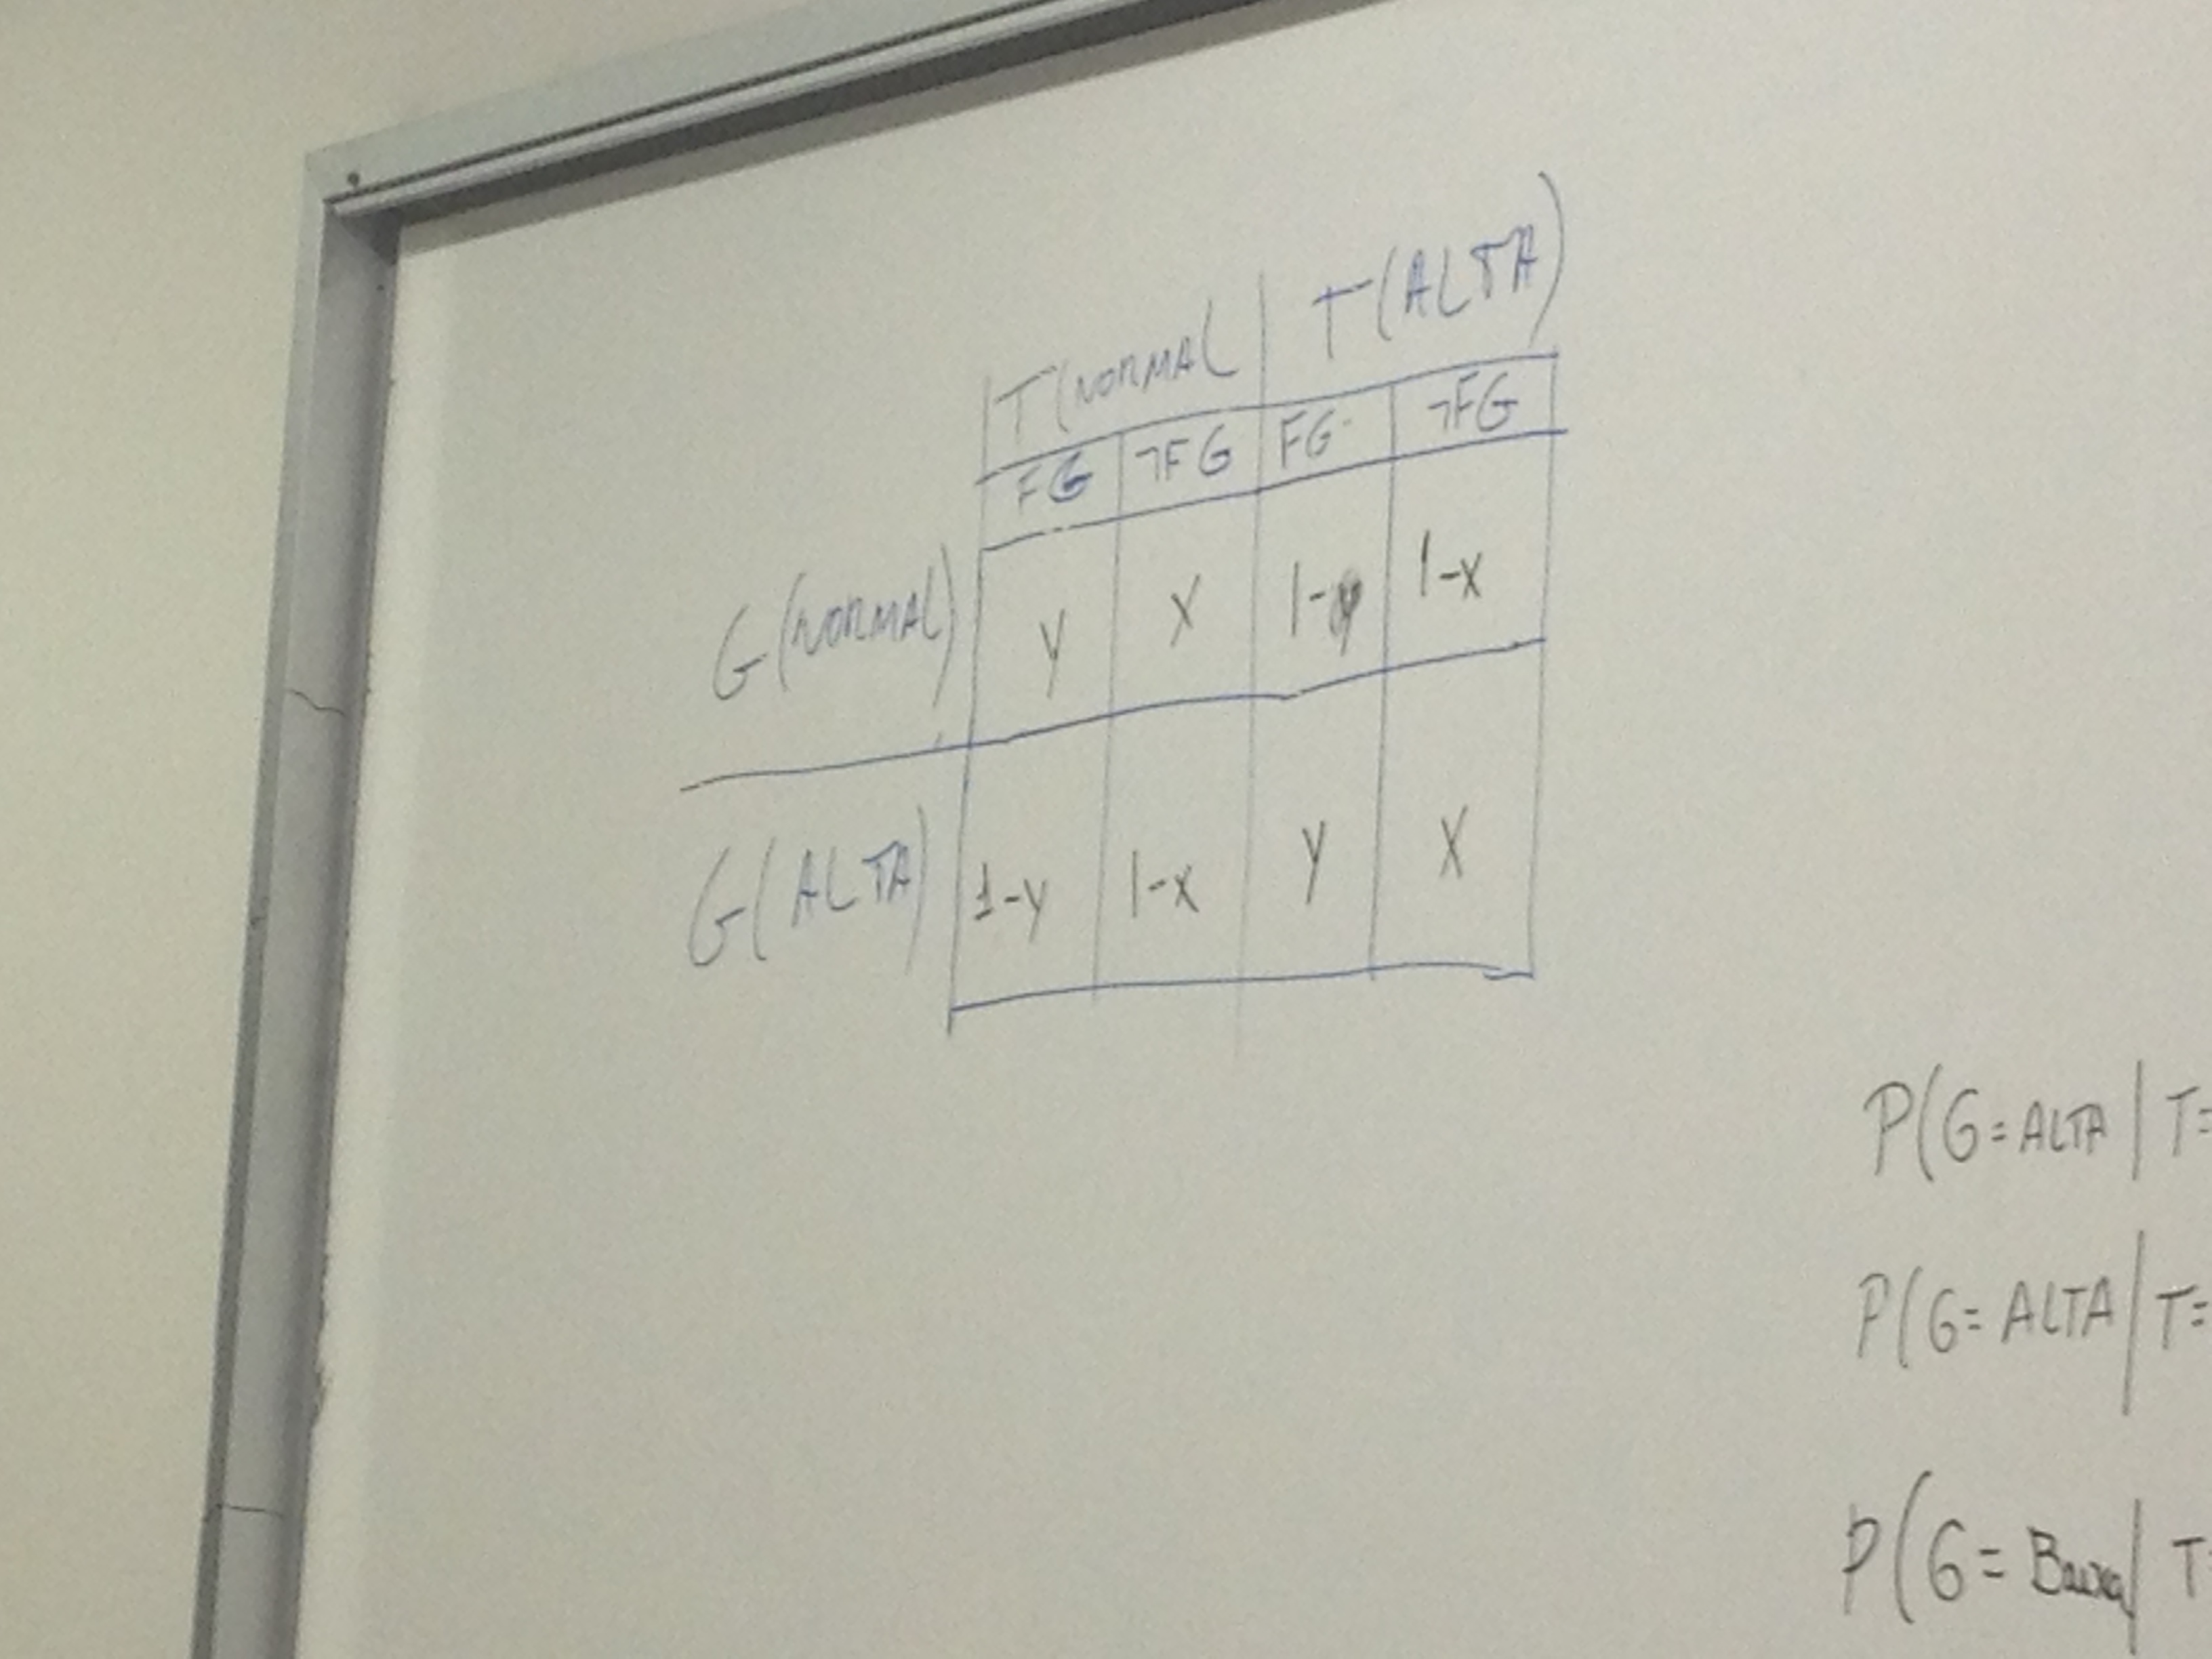 T(NORMAL T(ALTA)
FG ¬FG FG ¬FG
G(NORMAL) y x 1-y 1-x
G(ALTA) 1-y 1-x y x
P(G=ALTA | T=
P(G=ALTA | T=
P(G=Baixa | T=